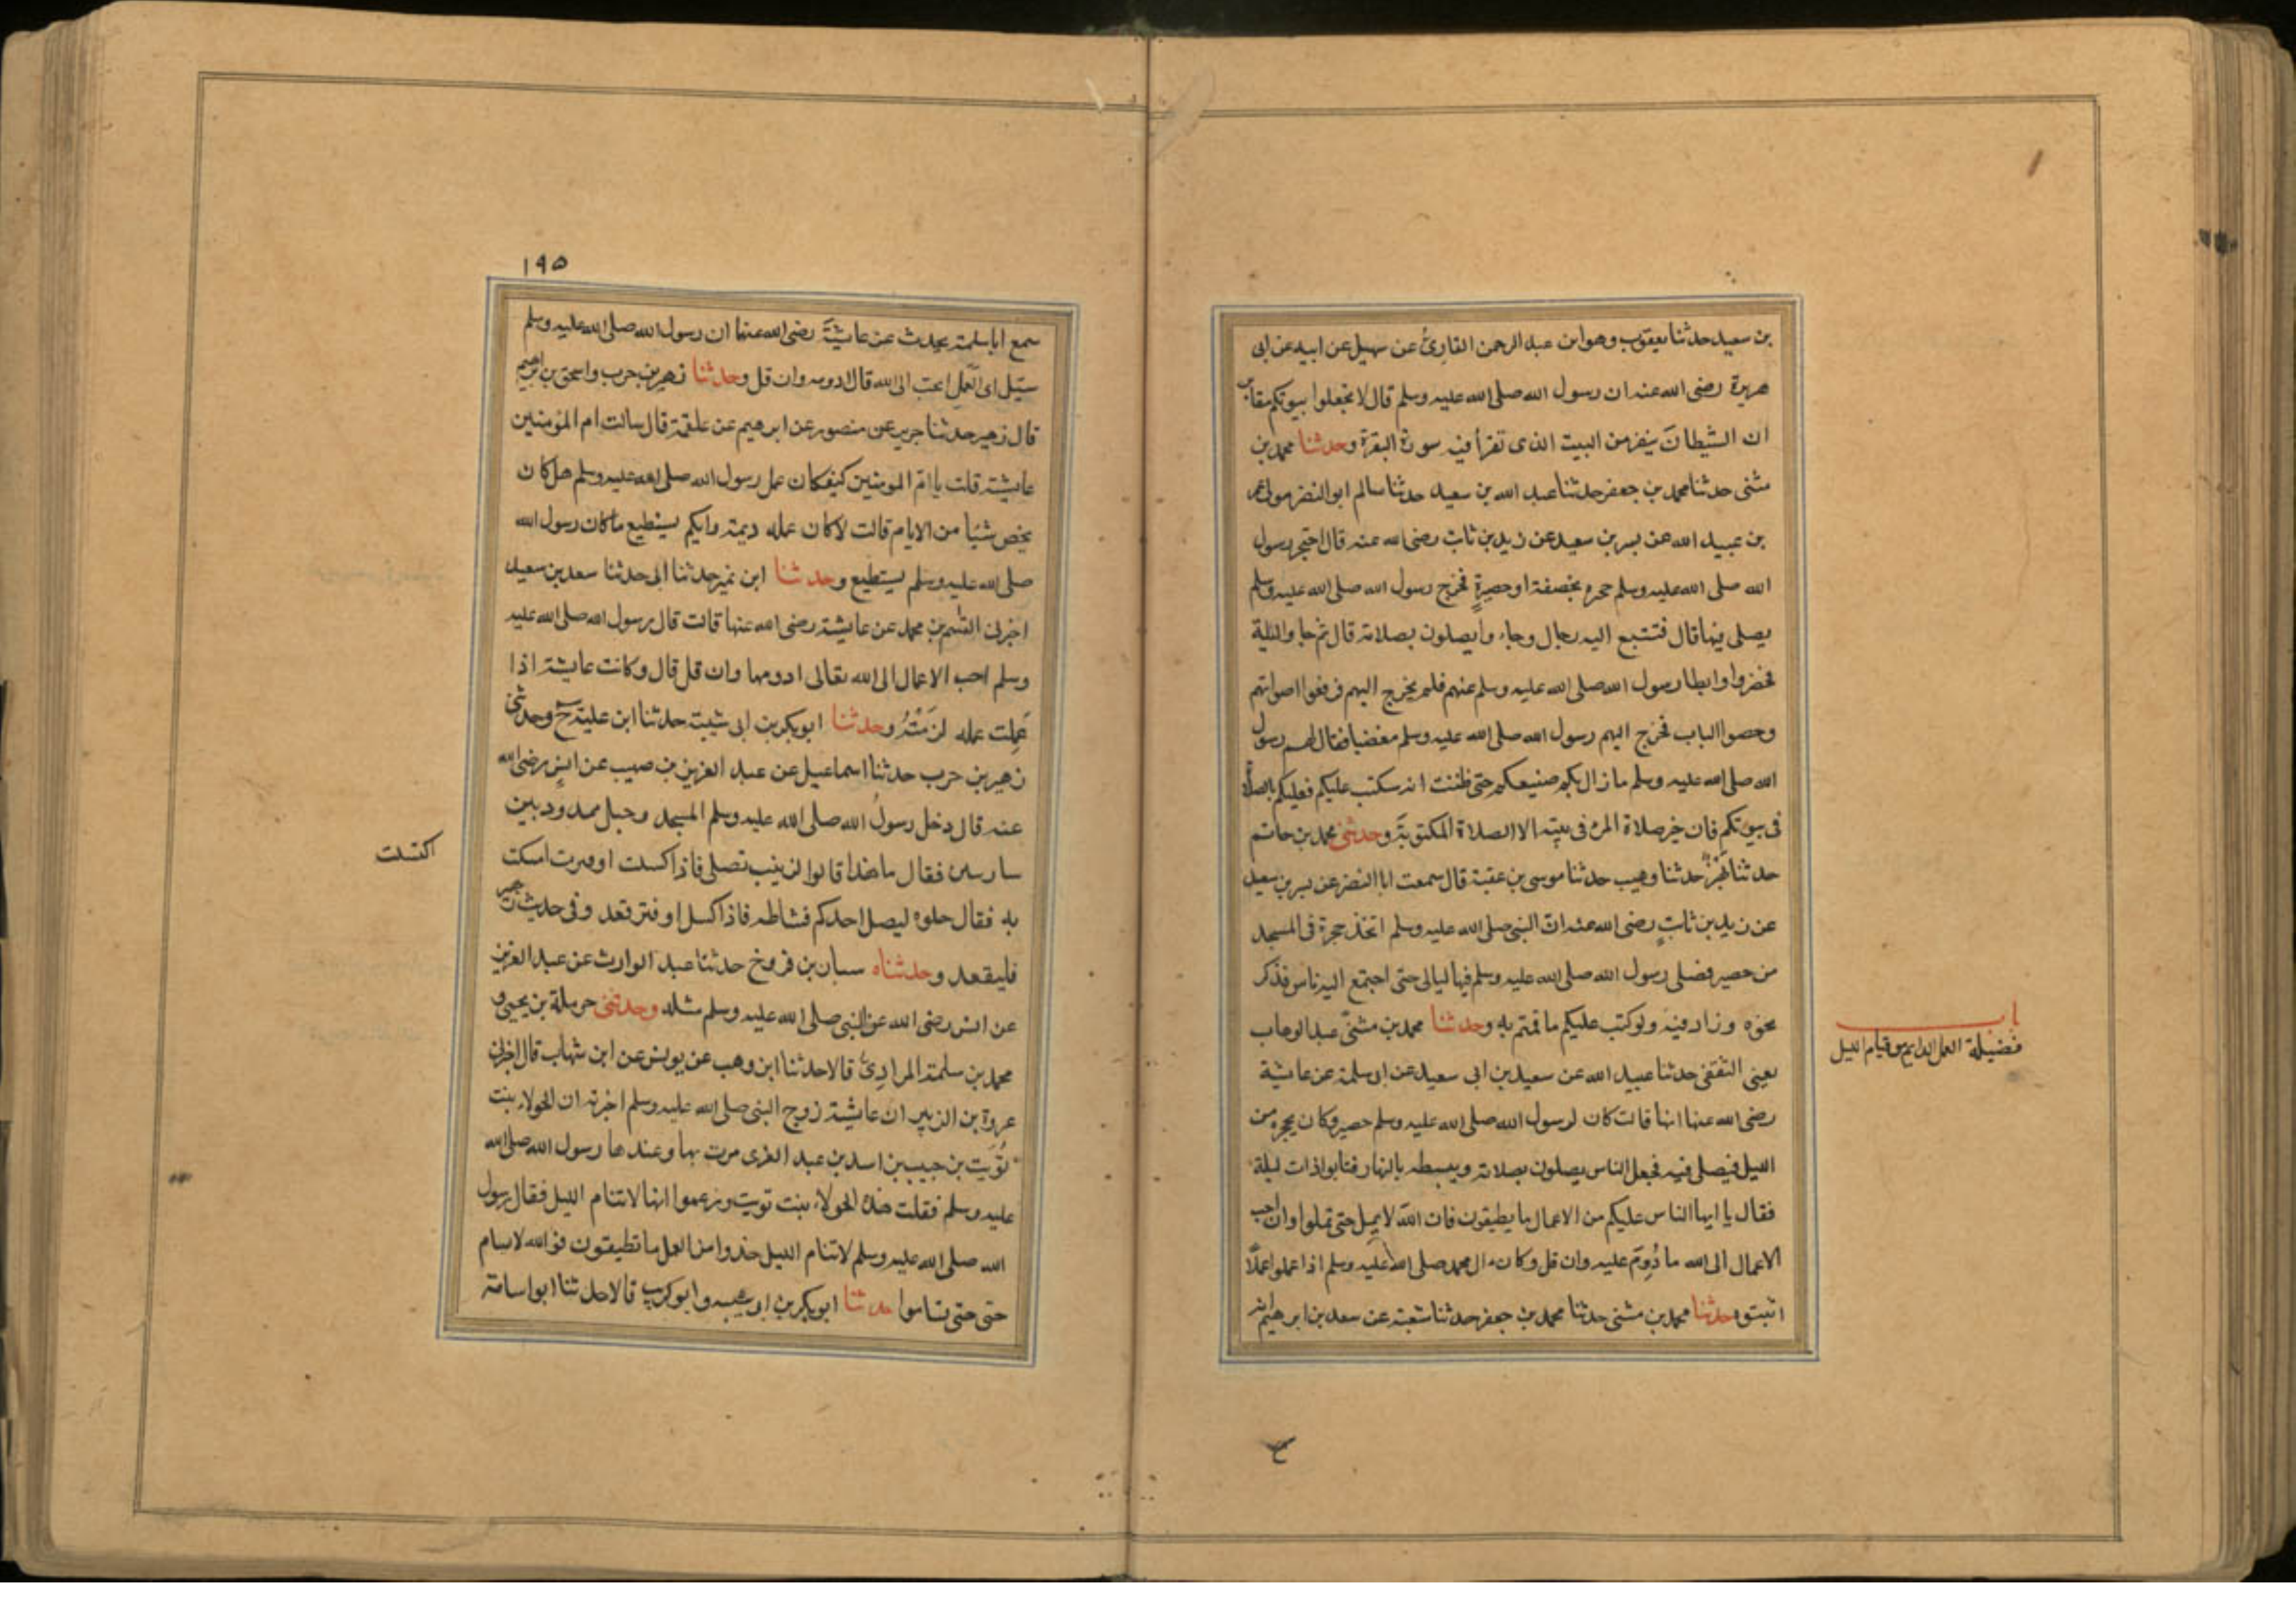 بن سعيد حدثنا يعقوب وهو ابن عبد الرحمن القارئ عن سهيل عن ابيه عن ابى
هريرة رضى الله عنه ان رسول الله صلى الله عليه وسلم قال لا تجعلوا بيوتكم مقابر
ان الشيطان ينفر من البيت الذى تقرأ فيه سورة البقرة وحدثنا محمد بن
مثنى حدثنا محمد بن جعفر حدثنا عبد الله بن سعيد حدثنا سالم ابو النضر مولى عمر
بن عبيد الله عن بسر بن سعيد عن زيد بن ثابت رضى الله عنه قال احتجر رسول
الله صلى الله عليه وسلم حجره بخصفة او حصيرٍ فخرج رسول الله صلى الله عليه وسلم
يصلى فيها قال فتتبع اليه رجال وجاء وا يصلون بصلاته قال ثم جاوا ليلة
فحضروا وابطا رسول الله صلى الله عليه وسلم عنهم فلم يخرج اليهم فرفعوا اصواتهم
وحصوا الباب فخرج اليهم رسول الله صلى الله عليه وسلم مغضبا فقال لهم رسول
الله صلى الله عليه وسلم ما زال بكم صنيعكم حتى ظننت انه سكتب عليكم فعليكم بالصلاة
فى بيوتكم فان خير صلاة المرء فى بيته الا الصلاة المكتوبة وحدثنى محمد بن حاتم
حدثنا بَهْزٌ حدثنا وهيب حدثنا موسى بن عقبة قال سمعت ابا النضر عن بسر بن سعيد
عن زيد بن ثابتٍ رضى الله عنه ان النبى صلى الله عليه وسلم اتخذ حجرة فى المسجد
من حصير فصلى رسول الله صلى الله عليه وسلم فيها ليالى حتى اجتمع اليه ناس فذكر
نحوه وزاد فيه ولو كتب عليكم ما قمتم به وحدثنا محمد بن مثنىّ عبد الوهاب
يعنى الثقفى حدثنا عبيد الله عن سعيد بن ابى سعيد عن ابى سلمة عن عايشة
رضى الله عنها انها قالت كان لرسول الله صلى الله عليه وسلم حصير وكان يحجره من
الليل فيصلى فيه فجعل الناس يصلون بصلاته ويبسطه بالنهار فثابوا ذات ليلة
فقال يا ايها الناس عليكم من الاعمال ما يطيقون فان الله لا يمل حتى تملوا وان احب
الاعمال الى الله ما دُوِمَ عليه وان قل وكان ال محمد صلى الله عليه وسلم اذا عملوا عملًا
اثبتوه حدثنا محمد بن مثنى حدثنا محمد بن جعفر حدثنا شعبة عن سعد بن ابرهيم انه
باب
فضيلة العمل الدايم من قيام الليل
١٩٥
سمع ابا سلمة يحدث عن عايشةَ رضى الله عنها ان رسول الله صلى الله عليه وسلم
سئيل اى العَمل احب الى الله قال ادومه وان قل وحدثنا زهير بن حرب واسحق بن ابرهيم
قال زهير حدثنا جرير عن منصور عن ابرهيم عن علقمة قال سالت ام المؤمنين
عايشة قلت يا امّ المومنين كيف كان عمل رسول الله صلى الله عليه وسلم هل كان
يخص شيًا من الايام قالت لا كان عمله ديمة وايكم يستطيع ما كان رسول الله
صلى الله عليه وسلم يستطيع وحدثنا ابن نمير حدثنا ابى حدثنا سعد بن سعيد
اخبرنى القسم بن محمد عن عايشة رضى الله عنها قالت قال رسول الله صلى الله عليه
وسلم احب الاعمال الى الله تعالى ادومها وان قل قال وكانت عايشة اذا
عَمِلت عمله لزمَتْهُ وحدثنا ابو بكر بن ابى شيبة حدثنا ابن علية ح وحدثنى
زهير بن حرب حدثنا اسماعيل عن عبد العزيز بن صهيب عن انسٍ رضى الله
عنه قال دخل رسولُ الله صلى الله عليه وسلم المسجد وحبل ممدود بين
ساريتين فقال ما هذا قالوا لزينب تصلى فاذا كسلت او فترت امسكت
به فقال حلوه ليصل احدكم نشاطه فاذا كسل او فتر قعد وفى حديث زهير
فليقعد وحدثناه شيبان بن فروخ حدثنا عبد الوارث عن عبد العزيز
عن انس رضى الله عن النبى صلى الله عليه وسلم مثله وحدثنى حرملة بن يحيى و
محمد بن سلمة المرادىّ قالا حدثنا ابن وهب عن يونس عن ابن شهاب قال اخبرنى
عروة بن الزبير ان عايشة زوج النبى صلى الله عليه وسلم اخبرته ان الحولاء بنت
تُوَيت بن حبيب بن اسد بن عبد العزى مرت بها وعندها رسول الله صلى الله
عليه وسلم فقلت هذه الحولاء بنت تويت وزعموا انها لا تنام الليل فقال رسول
الله صلى الله عليه وسلم لا تنام الليل خذوا من العمل ما تطيقون فوالله لا يسام
حتى حتى تساموا حدثنا ابو بكر بن ابى شيبه وابو كريب قالا حدثنا ابو اسامة